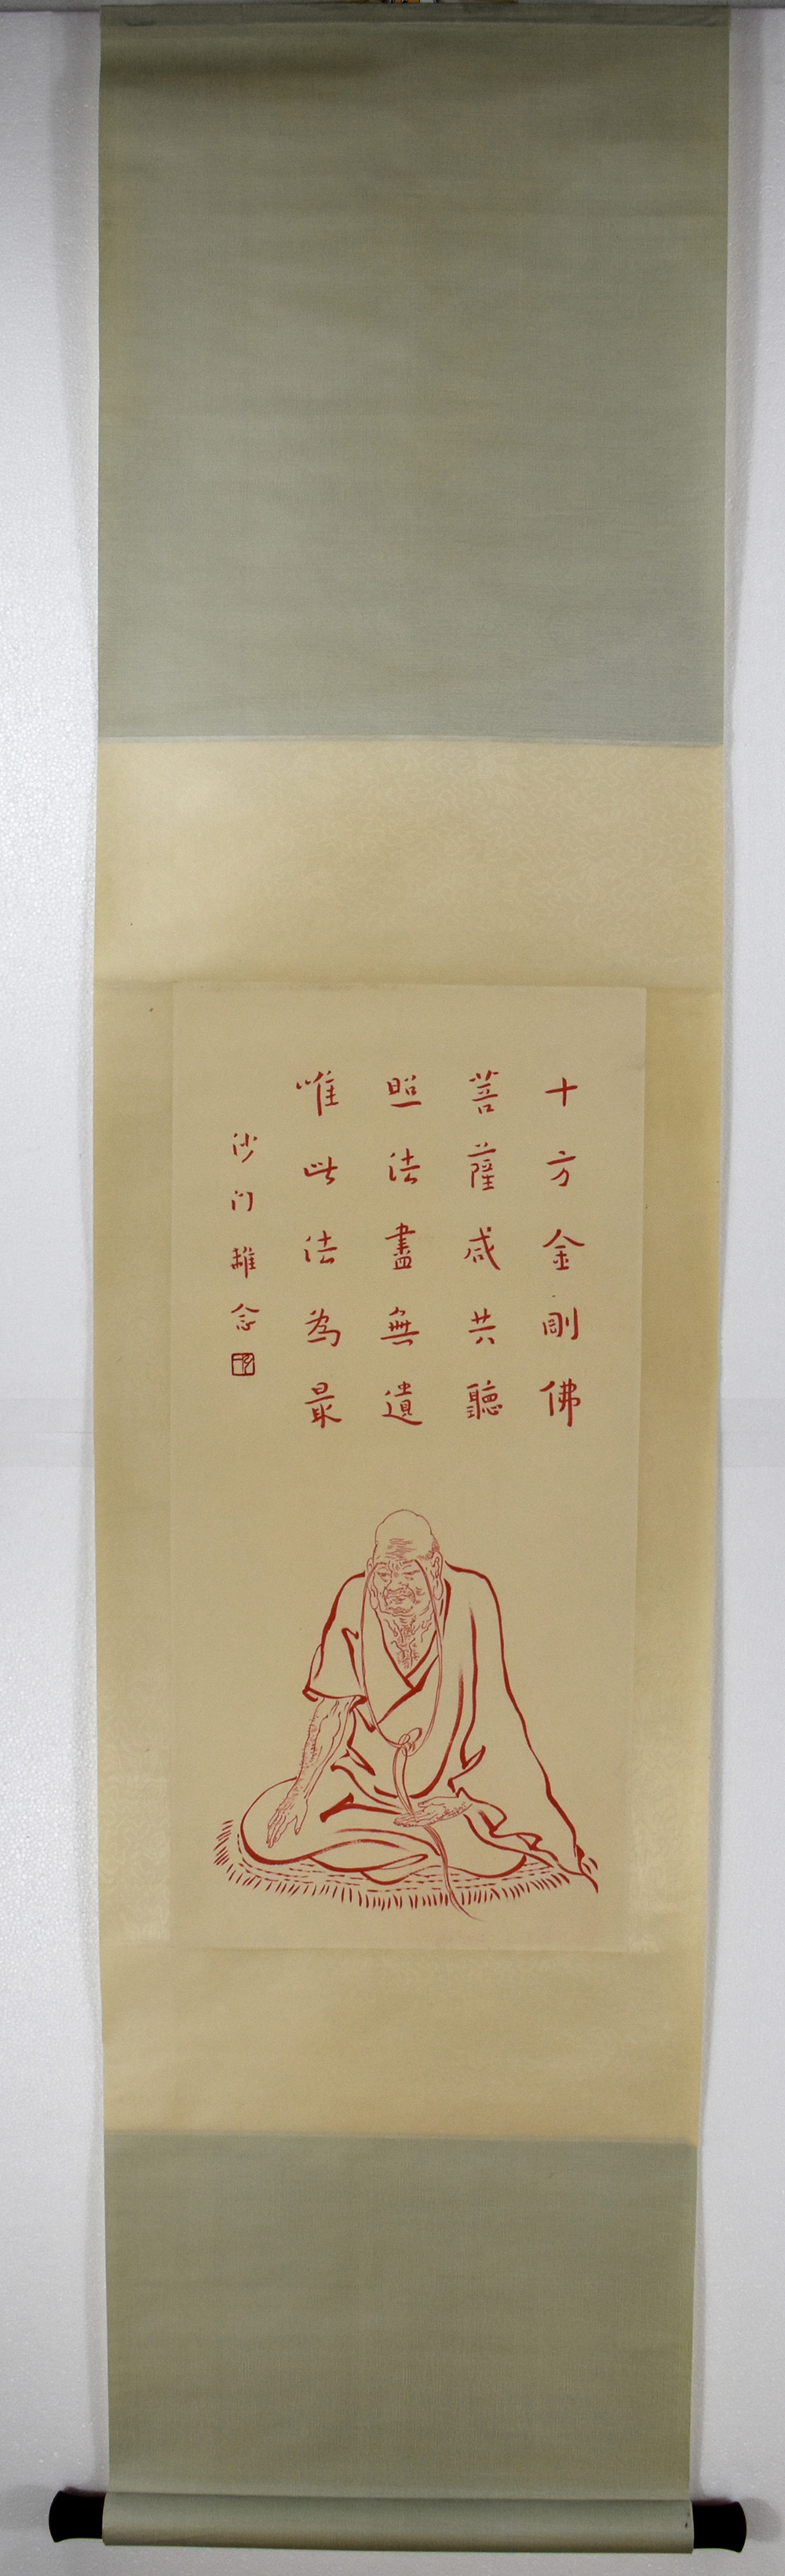 十方金剛佛
菩薩咸共聽
照法盡無遺
唯此法為最
沙门雜念